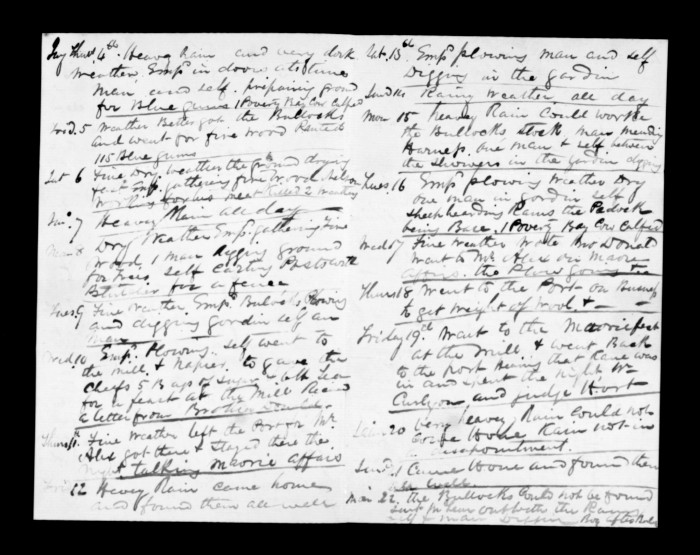 Thurs 4th Heavy Rain and very dark
weather, Empd in doors at times
man and self preparing ground
for Blue gums 1 Poverty Bay Cow Calfed
Frid. 5 Weather Better got the Bullocks
and went for fire wood Planted
115 Blue gums
Sat 6 Fine Dry weather the ground drying
Empd gathering fire wood
working for us meat Killed 2 weathers
7 Heavy Rain all day
Dry Weather Empd gathering fire
wood, 1 man diging ground
for trees self carting Posts with
Butcher for a fence
Tues 9 Fine Weather Empd Bullocks Plowing
and digging gardin self and
man
Wed. 10 Empd Plowing. Self went to
the mill, & Napier, to gave the
Chiefs 5 Bags of Sugar & Tea
for a feast at the Mill Recd
a letter from Brother
Thurs 11 Fine Weather left the Port for Mr
Alex got there & Stayed there the
night & talking Maorie affairs
12 Heavy Rain came home
and found them all well
Sat. 13th Empd plowing man and self
Digging in the gardin
Sund 14 Rainy Weather all day
Mon 15 heavy Rain Could work
the Bullocks, stock man mending
Harness, one man & self between
the Showers in the Gardin digging
Tues 16 Empd plowing Weather Dry
one man in gardin self
Sheepheearding Rams the Padock
being Bare. 1 Poverty Bay Cow Calfed
Wed 17 Fine Weather Wrote Mr McDonald
Went to Mr Alex on Maorie
affairs. the Plow going
Thurs 18, Went to the Port on Business
to get weight of wool. &
Friday 19th Went to the Maories feast
at the Mill & went Back
to the Port hering that Kane was
in and spent the Night Mr
Curlyon and judge Hort
20 Very heavy Rain Could not
Come Home, Rain not in
a disepointment.
Sund. 1 Came Home and found them
all well
Mon 22. the Bullocks Could not be found
out with the Rams
self & man